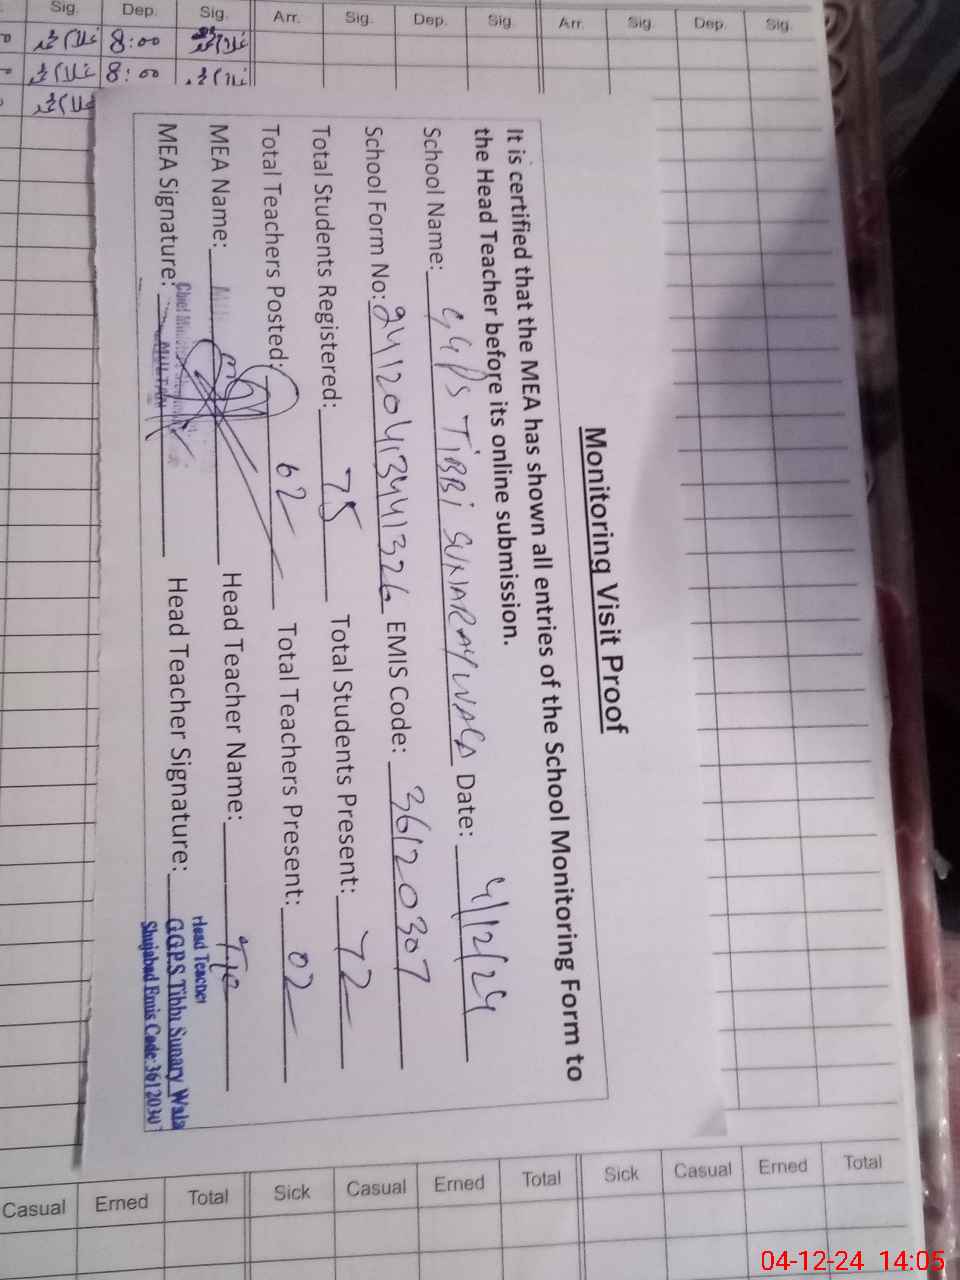 Sig. Dep. Sig. Arr. Sig. Dep. Sig. Arr. Sig Dep. Sig.
8:00
8:00
Monitoring Visit Proof
It is certified that the MEA has shown all entries of the School Monitoring Form to
the Head Teacher before its online submission.
School Name: GGPS TiBBi SUNARAYWALA Date: 4/12/24
School Form No: 24120413441326 EMIS Code: 36120307
Total Students Registered: 75 Total Students Present: 72
Total Teachers Posted: 02 Total Teachers Present: 02
MEA Name: Head Teacher Name:
MEA Signature: Head Teacher Signature:
Chief Minister's
MULTAN
Head Teacher
G.G.P.S Tibbi Sunary Wala
Shujabad Emis Code:36120307
Casual Erned Total Sick Casual Erned Total Sick Casual Erned Total
04-12-24 14:05